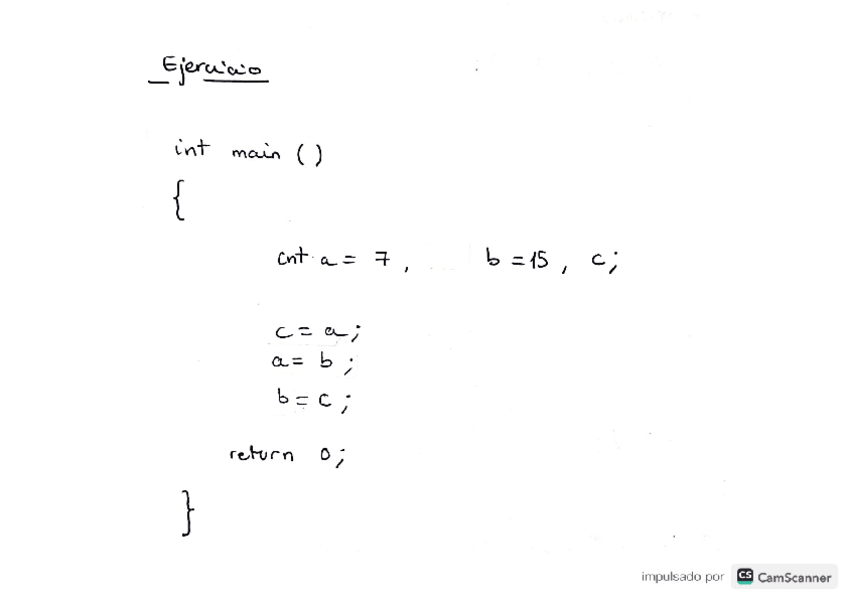 Ejercicio
int main ()
{
int a = 7, b = 15, c;
c = a;
a = b;
b = c;
return 0;
}
impulsado por CS CamScanner